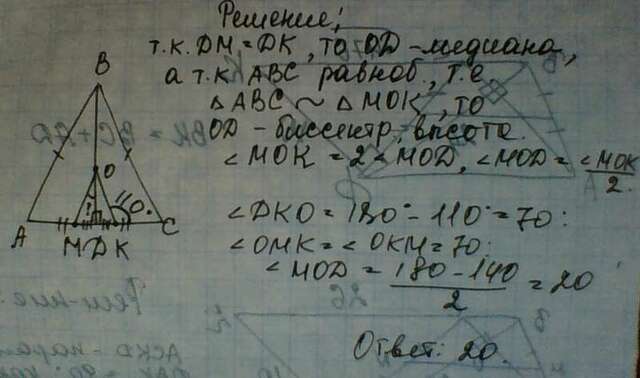 Решение:
т.к. DM = DK, то OD - медиана,
а т.к ABC равноб., т.е
△ABC ~ △MOK, то
OD - биссектр, высота.
∠MOK = 2∠MOD, ∠MOD = ∠MOK/2.
∠DKO = 180° - 110° = 70:
∠OMK = ∠OKM = 70:
∠MOD = (180 - 140)/2 = 20
Ответ: 20.
B
O
110.
A
M D K
C